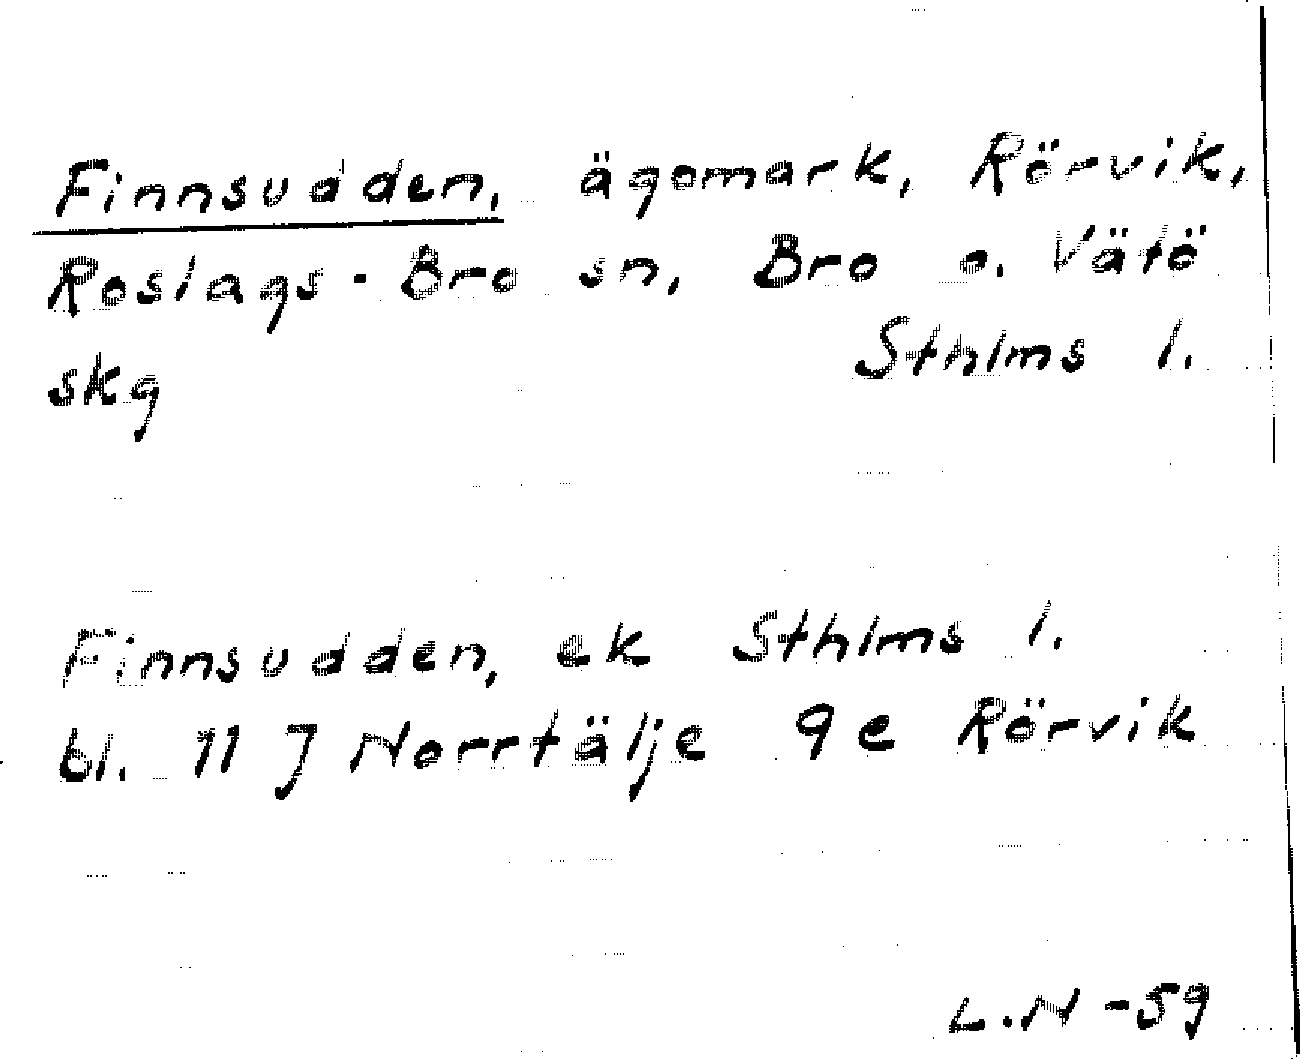 Finnsudden, ägomark, Rörvik,
Roslags-Bro sn, Bro o. Vätö
skg Sthlms l.
Finnsudden, ek Sthlms l.
bl. 11 J Norrtälje 9e Rörvik
L.N -59